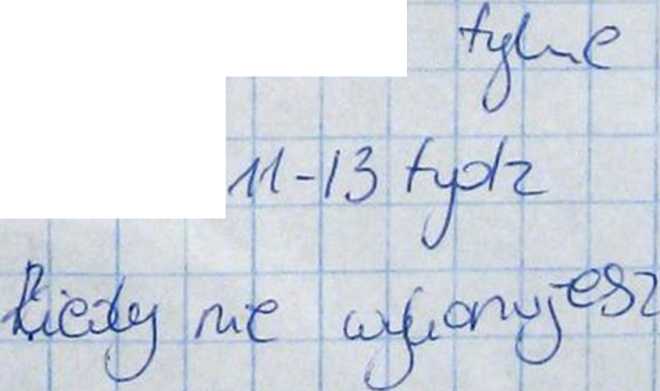 tylne
11-13 tydz
Kiedy nie wykonujesz